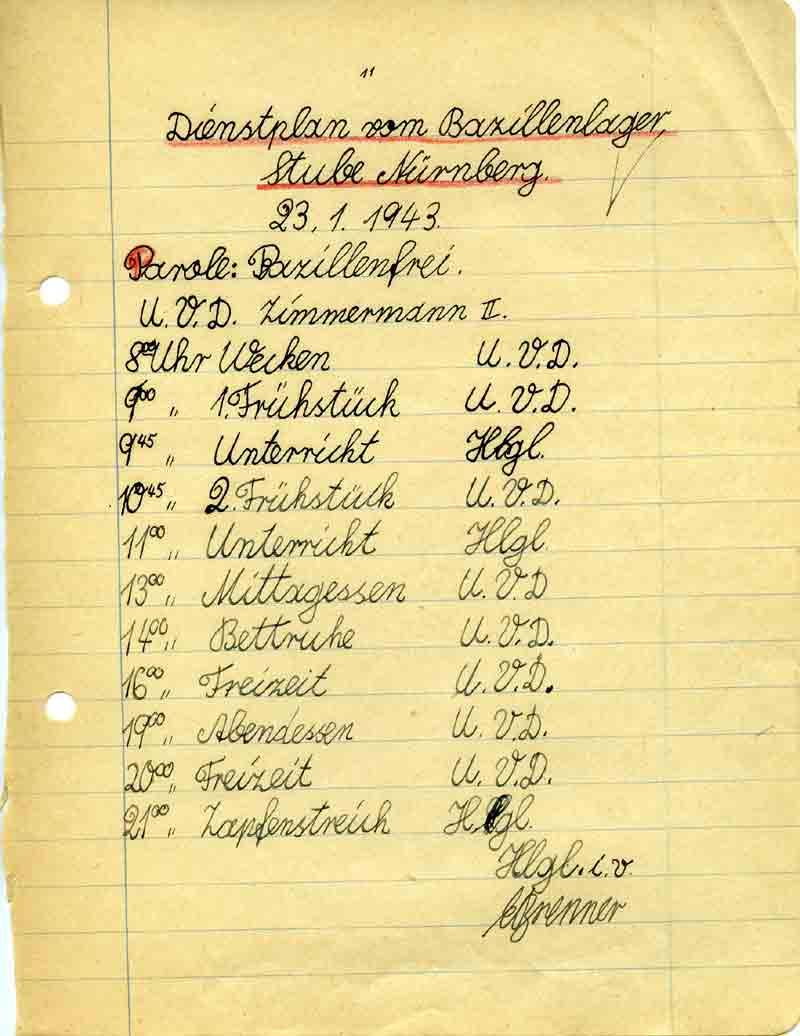 11
Dienstplan vom Bazillenlager,
Stube Nürnberg.
23.1.1943.
Parole: Bazillenfrei.
U.V.D. Zimmermann II.
8⁰⁰ Uhr Wecken U.V.D.
9⁰⁰ „ 1. Frühstück U.V.D.
9⁴⁵ „ Unterricht Hlgl.
10⁴⁵ „ 2. Frühstück U.V.D.
11⁰⁰ „ Unterricht Hlgl.
13⁰⁰ „ Mittagessen U.V.D
14⁰⁰ „ Bettruhe U.V.D.
16⁰⁰ „ Freizeit U.V.D.
19⁰⁰ „ Abendessen U.V.D.
20⁰⁰ „ Freizeit U.V.D.
21⁰⁰ „ Zapfenstreich Hlgl.
Hlgl. i.v.